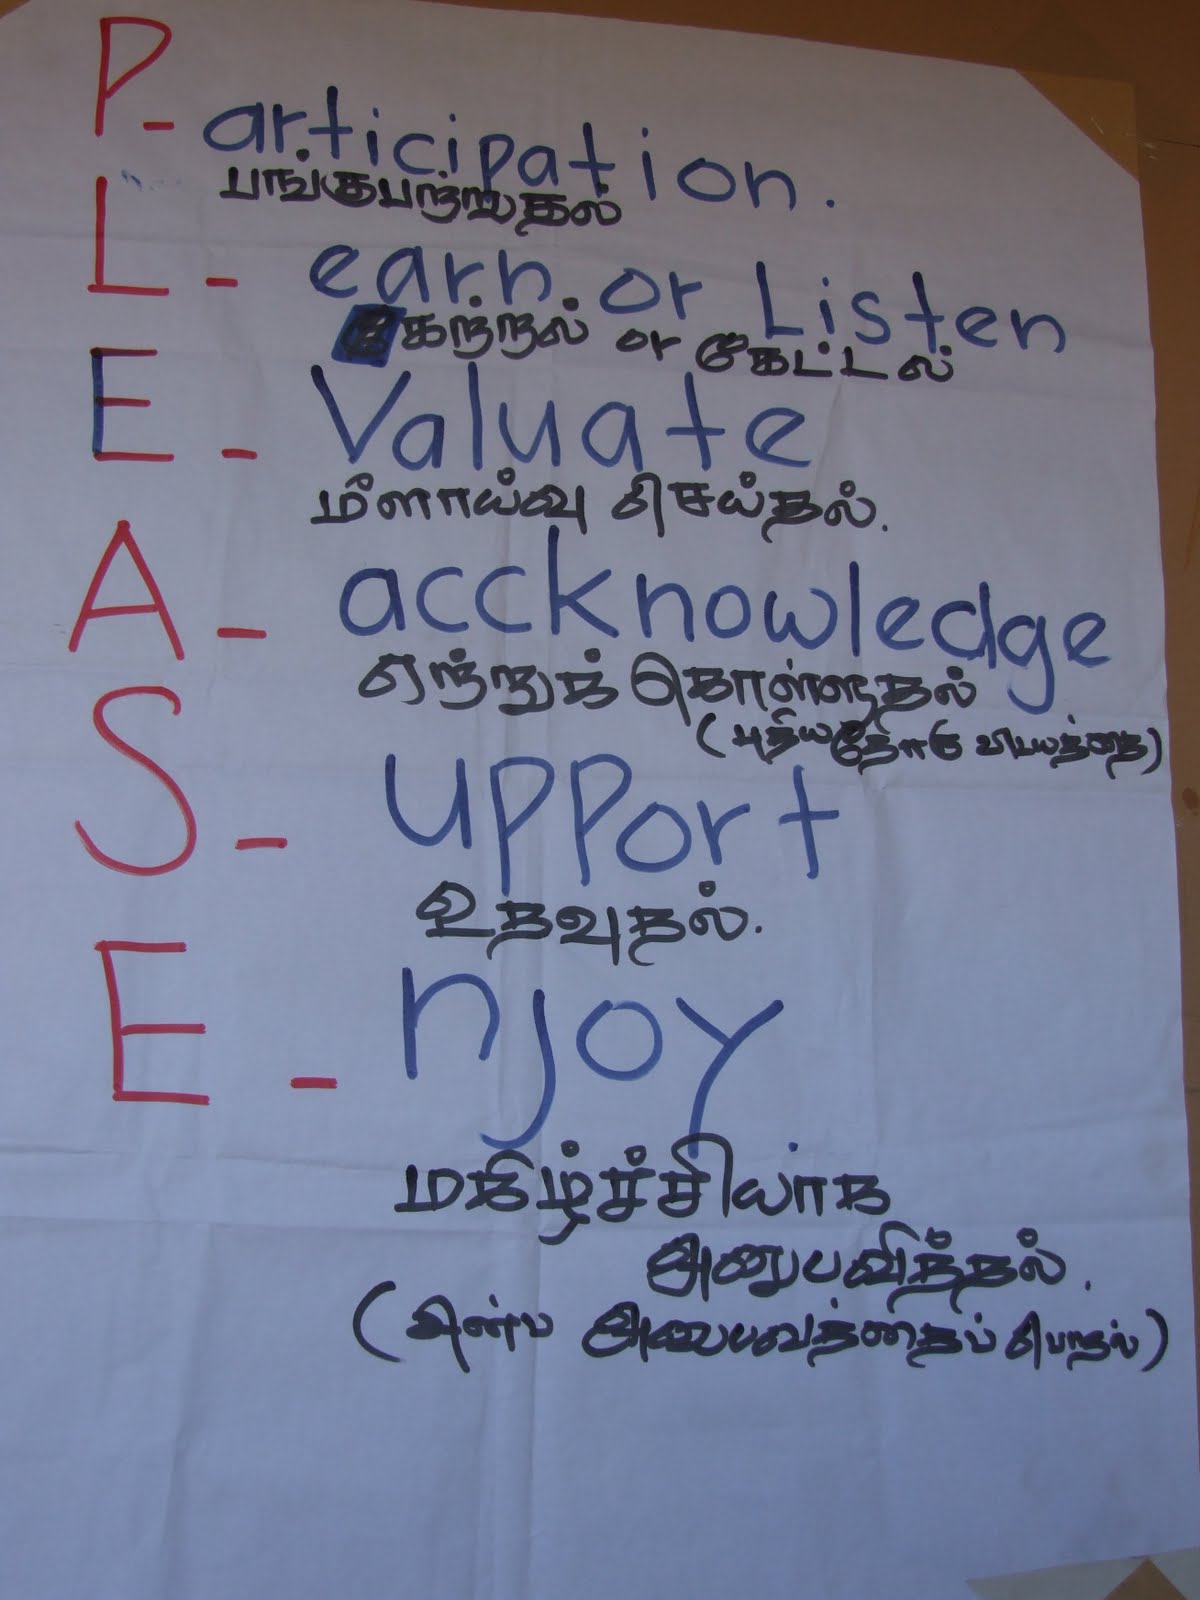 P - articipation.
பங்குபற்றுதல்
L - earn. or Listen
கற்றல் or கேட்டல்
E - Valuate
மீளாய்வு செய்தல்.
A - accknowledge
ஏற்றுக் கொள்ளுதல்
(புதிய
S - upport
உதவுதல்.
E - njoy
மகிழ்ச்சியாக
அனுபவித்தல்.
(இன்ப அனுபவத்தைப் பெறல்)